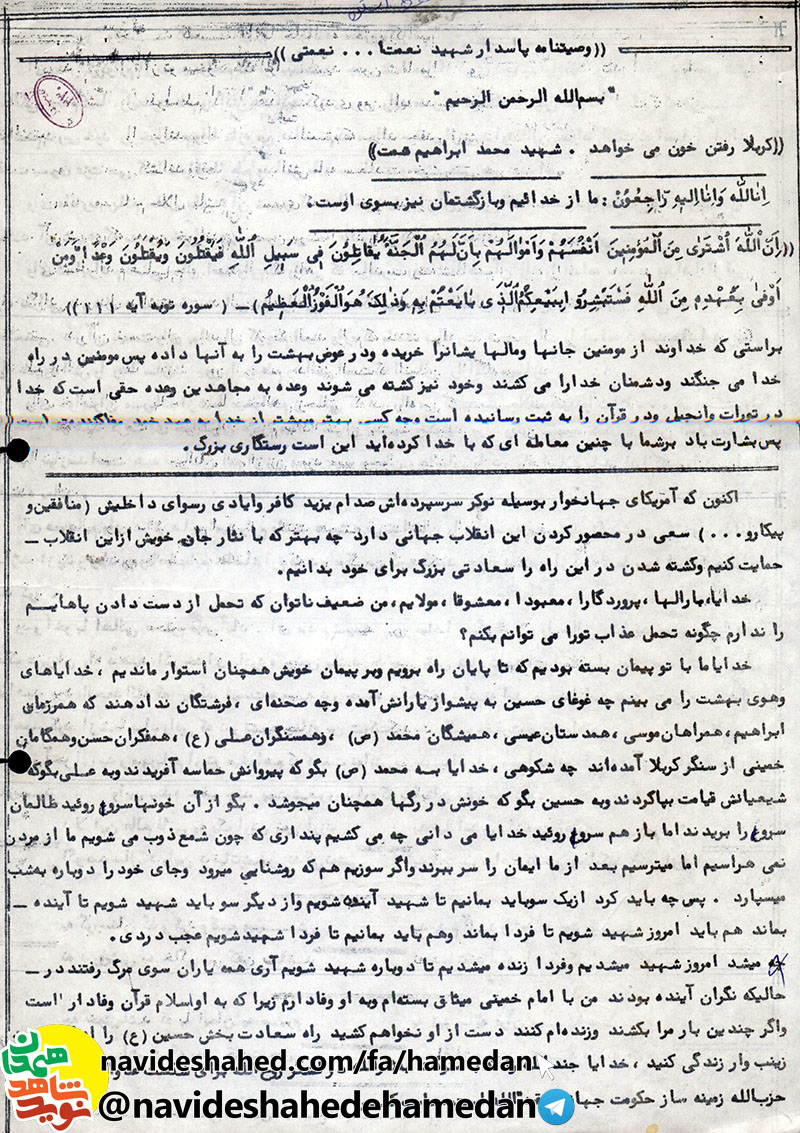 ((وصیتنامه پاسدار شهید نعمت ا... نجمتی))
"بسم‌الله الرحمن الرحیم"
((کربلا رفتن خون می خواهد . شهید محمد ابراهیم همت))
اِنّالله وَانّااِلیهِ رٰاجِعُوُنْ : ما از خدائیم وبازگشتمان نیز بسوی اوست .
((اِنَ اللّٰهَ اْشْتَرٰی مِنَ الْمُؤمِنینَ اَنْفُسَهُمْ وَاَمْوٰالَهُمْ بِاَنَّ لَهُمُ الْجَنَّةُ یُقٰاتِلُونَ فِی سَبیلِ اللّٰهِ فَیَقْتُلُونَ وَیُقْتَلُونَ وَعْدًا وَمِن
اَوْفیٰ بِعَهْدِهِ مِنَ اللّٰهِ فَسْتَبْشِرُو ابِبَیْعِکُمُ الَّذی بٰایَعْتُمْ بِهِ وَذٰلِکَ هُوَالْفَوْزُ الْعَظیُمُ) – ( سوره توبه آیه ۱۱۱))
براستی که خداوند از مومنین جانها ومالها یشانرا خریده ودر عوض بهشت را به آنها داده پس مومنین در راه
خدا می جنگند ودشمنان خدارا می کشند وخود نیز کشته می شوند وعده به مجاهدین وعده حقی است که خدا
در تورات وانجیل ودر قرآن را به ثبت رسانیده است وچه کسی بهتر وبیشتر از خدا به عهد خود وفاکننده تر است
پس بشارت باد برشما با چنین معامله ای که با خدا کرده‌اید این است رستگاری بزرگ .
اکنون که آمریکای جهانخوار بوسیله نوکر سرسپرده‌اش صدام یزید کافر وایادی رسوای داخلیش (منافقین و
پیکارو ... ) سعی در محصور کردن این انقلاب جهانی دارد چه بهتر که با نثار جان خویش از این انقلاب –
حمایت کنیم وکشته شدن در این راه را سعادتی بزرگ برای خود بدانیم .
خدایا ، بارالها ، پروردگارا ، معبودا ، معشوقا ، مولایم ، من ضعیف ناتوان که تحمل از دست دادن پاهایم
را ندارم چگونه تحمل عذاب تورا می توانم بکنم ؟
خدایا ما با تو پیمان بسته بودیم که تا پایان راه برویم وبر پیمان خویش همچنان استوار ماندیم ، خدایاهای
وهوی بهشت را می بینم چه غوغای حسین به پیشواز یارانش آمده وچه صحنه‌ای ، فرشتگان ندا دهند که همرزمان
ابراهیم ، همراهان موسی ، همدستان عیسی ، همیشگان محمد (ص) ، وهمسنگران علی (ع) ، همفکران حسن وهمگامان
خمینی از سنگر کربلا آمده‌اند چه شکوهی ، خدایا به محمد (ص) بگو که پیروانش حماسه آفریدند وبه علی بگو که
شیعیانش قیامت بپاکردند وبه حسین بگو که خونش در رگها همچنان میجوشد . بگو از آن خونها سرو روئید ظالمان
سروها را بریدند اما باز هم سروها روئید خدایا می دانی چه می کشیم پنداری که چون شمع ذوب می شویم ما از مردن
نمی هراسیم اما میترسیم بعد از ما ایمان را سر ببرند واگر سوزیم هم که روشنایی میرود وجای خود را دوباره به‌شب
میسپارد . پس چه باید کرد ازیک سوباید بمانیم تا شهید آینده شویم واز دیگر سو باید شهید شویم تا آینده –
بماند هم باید امروز شهید شویم تا فردا بماند وهم باید بمانیم تا فردا شهید شویم عجب دردی .
چه میشد امروز شهید میشدیم وفردا زنده میشدیم تا دوباره شهید شویم آری همه یاران سوی مرگ رفتند در –
حالیکه نگران آینده بودند من با امام خمینی میثاق بسته‌ام وبه او وفادارم زیرا که به اواسلام قرآن وفادار است
واگر چندین بار مرا بکشند وزنده‌ام کنند دست از او نخواهم کشید راه سعادت بخش حسین (ع) را
زینب وار زندگی کنید ، خدایا
حزب‌الله زمینه ساز حکومت
نوید شاهد همدان
navideshahed.com/fa/hamedan
@navideshahedehamedan